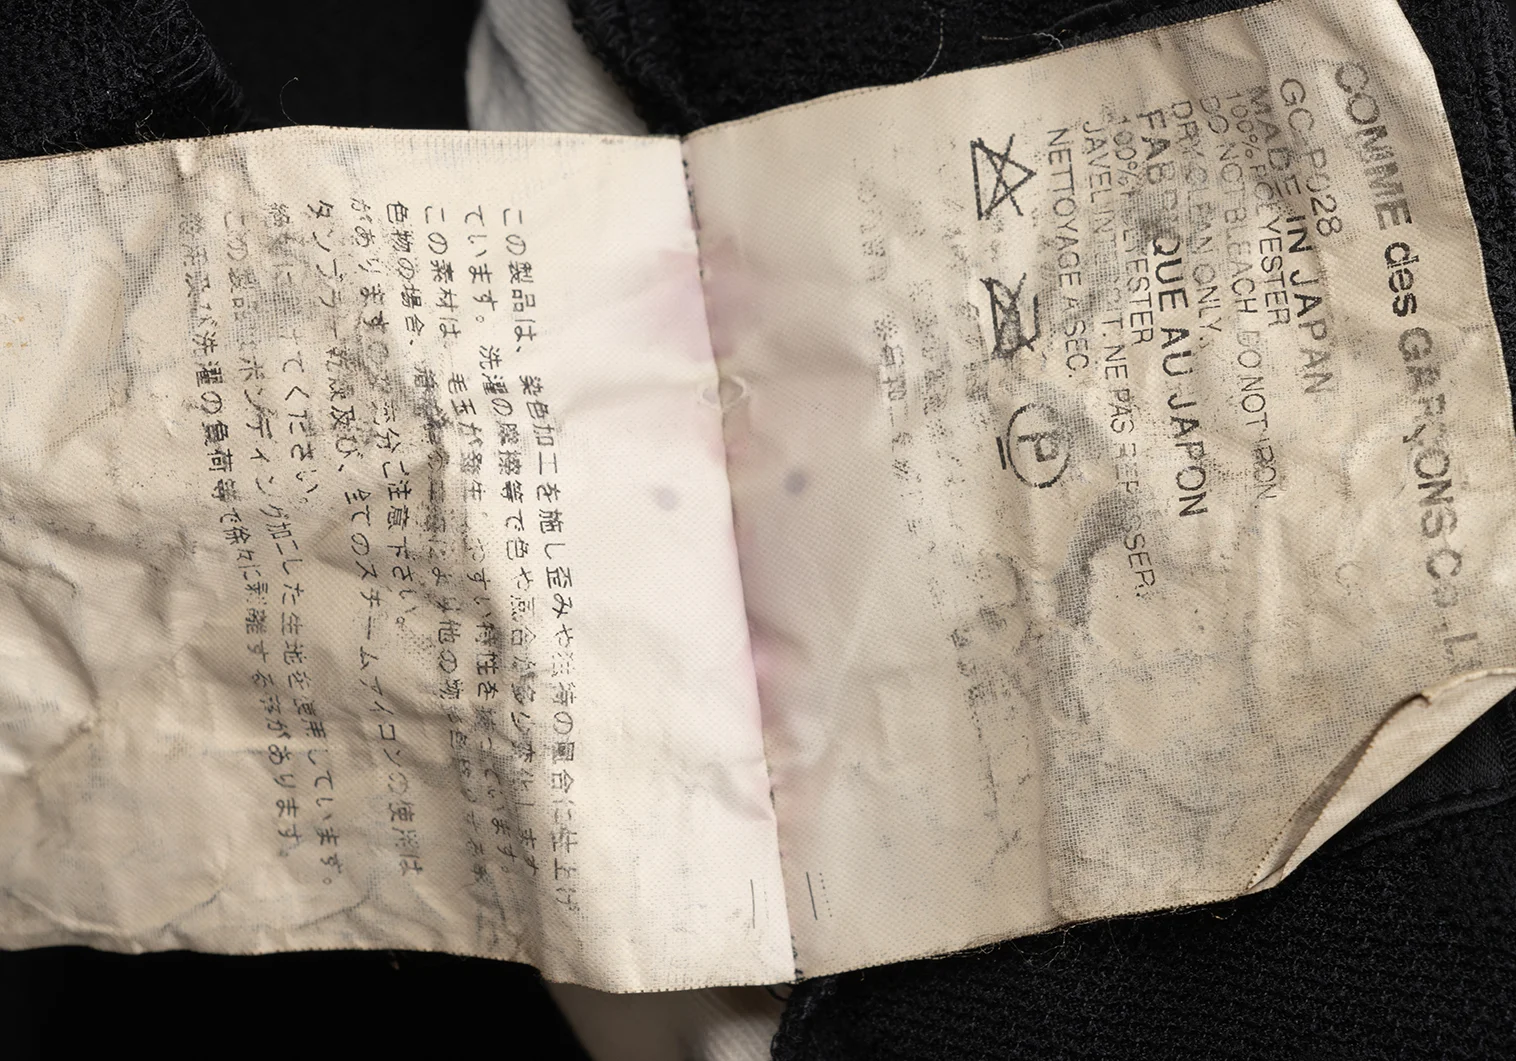 COMME des GARÇONS Co., Lt
GC-P028
MADE IN JAPAN
100% POLYESTER
DO NOT BLEACH. DO NOT IRON.
DRY CLEAN ONLY.
FABRIQUE AU JAPON
100% POLYESTER
JAVEL INTERDIT. NE PAS REPASSER.
NETTOYAGE A SEC.
P
この製品は、染色加工を施し歪みや の風合に仕上げ
ています。洗濯の摩擦等で色や風合が多少変化します。
この素材は、毛玉が発生しやすい特性を持っています。
色物の場合、 により他の物に色移りする事
がありますので充分ご注意下さい。
タンブラー乾燥及び、全てのスチームアイコンの使用は
絶対に けてください。
この製品はボンディング加工した生地を使用しています。
及び洗濯の負荷等で徐々に剥離する があります。